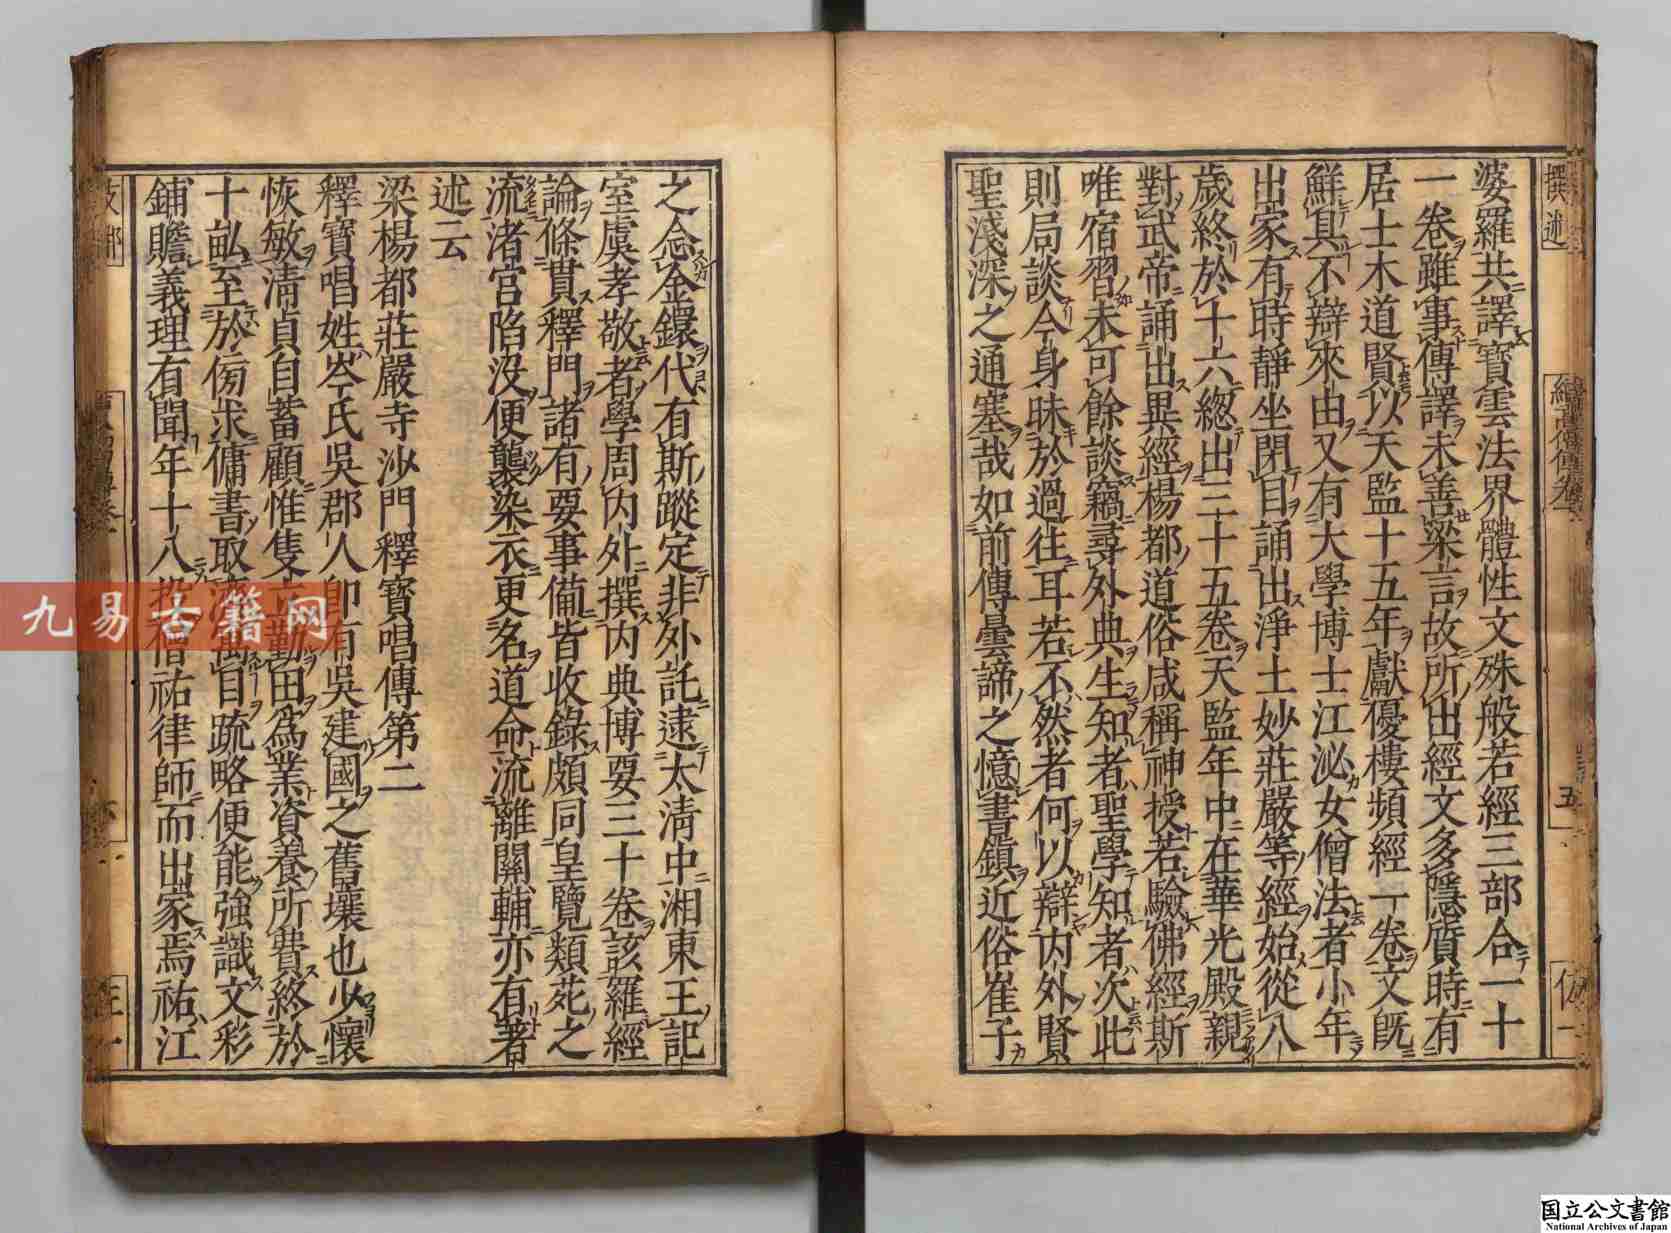 婆羅共譯寶雲法界體性文殊般若經三部合一十
一卷雖事傳譯未善梁言故所出經文多隱質時有
居士木道賢以天監十五年獻優樓頻經一卷文既
鮮具不辯來由又有大學博士江泌女僧法者小年
出家有時靜坐閉目誦出淨土妙莊嚴等經始從八
歲終於十六總出三十五卷天監年中在華光殿親
對武帝誦出異經楊都道俗咸稱神授若驗佛經斯
唯宿習未可餘談竊尋外典生知者聖學知者次此
則局談今身昧於過往耳若不然者何以辯内外賢
聖淺深之通塞哉如前傳曇諦之憶書鎮近俗崔子
之念金鐶代有斯蹤定非外託逮太清中湘東王記
室虞孝敬者學周内外撰内典博要三十卷該羅經
論條貫釋門諸有要事備皆收錄頗同皇覽類苑之
流渚宮陷没便襲染衣更名道命流離關輔亦有著
述云
梁楊都莊嚴寺沙門釋寶唱傳第二
釋寶唱姓岑氏吳郡人卽有吳建國之舊壤也少懷
恢敏清貞自蓄顧惟隻立勤田爲業資養所費終於
十畝至於傍求傭書取濟寓目疏略便能強識文彩
鋪贍義理有聞年十八投僧祐律師而出家焉祐江
撰述
續高僧傳卷一
五
九易古籍网
国立公文書館
National Archives of Japan